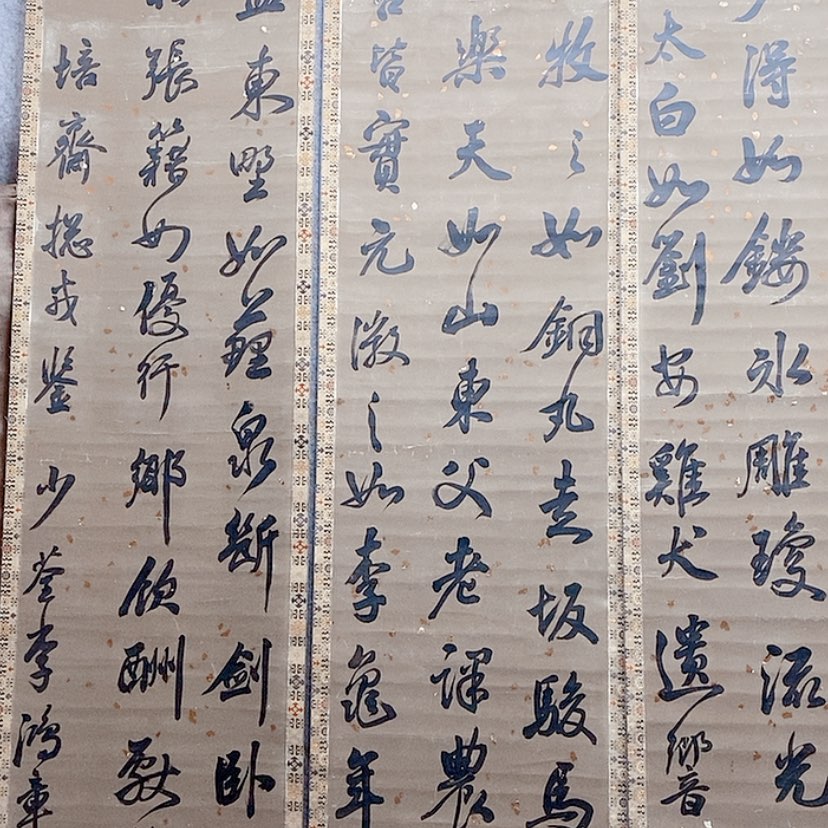 得如鏤冰雕瓊流光
太白如劉安雞犬遺響
牧之如銅丸走坂駿馬
樂天如山東父老課農
皆實元微之如李龜年
東野如薶泉斷劍臥
張籍如優行鄉飲酬獻
培齋摠戎鑒 少荃李鴻章